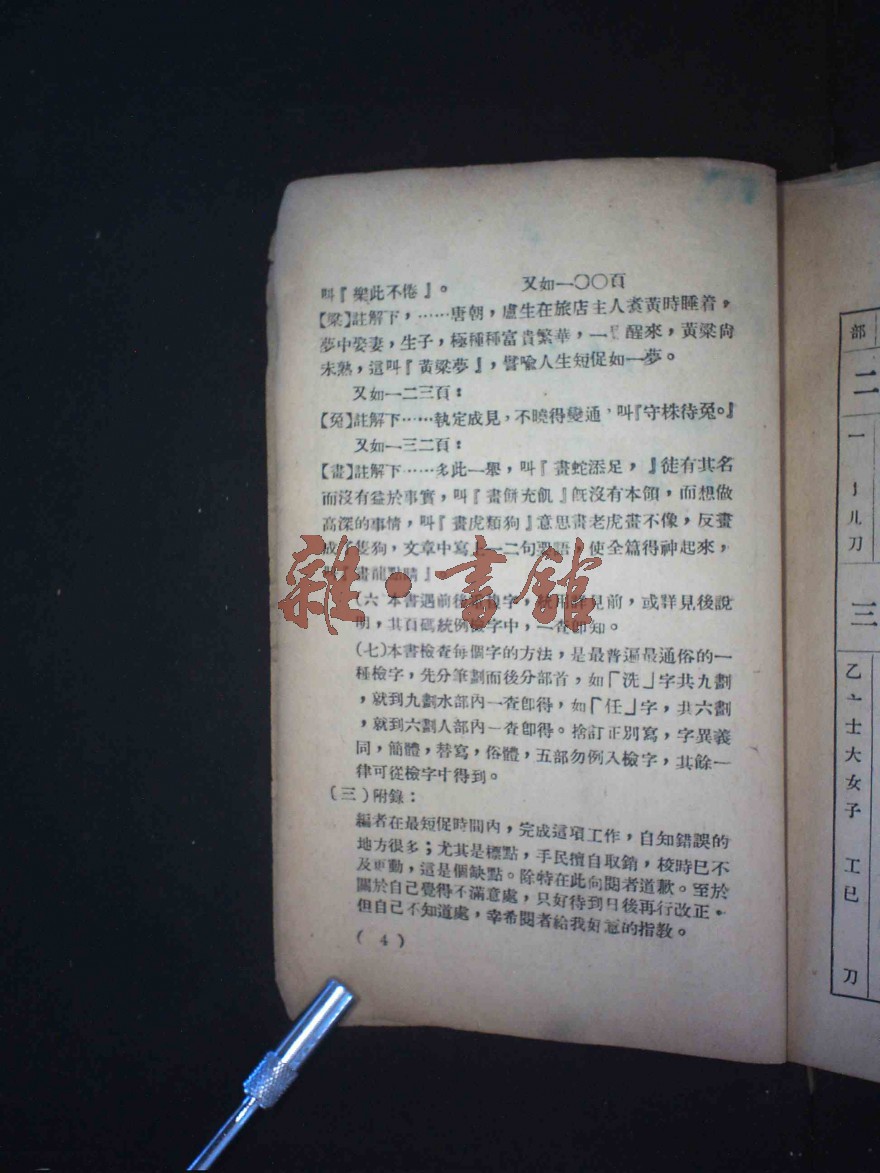 叫『樂此不倦』。 又如一〇〇百
【粱】註解下,……唐朝,盧生在旅店主人煑黃時睡着,
夢中娶妻,生子,極種種富貴繁華,一 醒來,黃粱尙
未熟,這叫『黃粱夢』,譬喩人生短促如一夢。
又如一二三百:
【兔】註解下……執定成見,不曉得變通,叫『守株待兔。』
又如一三二百:
【畫】註解下……多此一舉,叫『畫蛇添足,』徒有其名
而沒有益於事實,叫『畫餅充飢』旣沒有本領,而想做
高深的事情,叫『畫虎類狗』意思畫老虎畫不像,反畫
成了隻狗,文章中寫上一二句要語,使全篇得神起來,
『畫龍點睛』
(六 本書遇前後 字, 用詳見前,或詳見後說
明,其百碼統例檢字中,一查即知。
(七)本書檢查每個字的方法,是最普遍最通俗的一
種檢字,先分筆劃而後分部首,如「洗」字共九劃
,就到九劃水部內一查卽得,如「任」字,共六劃
,就到六劃人部內一查卽得。捨訂正別寫,字異義
同,簡體,替寫,俗體,五部勿例入檢字,其餘一
律可從檢字中得到。
(三)附錄:
編者在最短促時間內,完成這項工作,自知錯誤的
地方很多;尤其是標點,手民擅自取銷,校時已不
及更動,這是個缺點。除特在此向閱者道歉。至於
關於自己覺得不滿意處,只好待到日後再行改正。
但自己不知道處,幸希閱者給我好意的指敎。
( 4 )
雜·書館
部
二
一
丨
儿
刀
三
乙
亠
士
大
女
子
工
已
刀